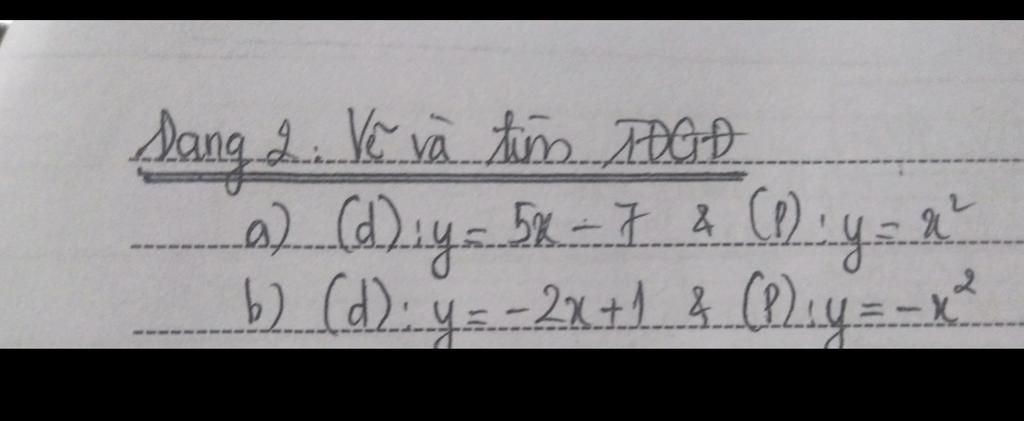 Dạng 2: Vẽ và tìm TĐGĐ
a) (d): y = 5x - 7 & (P): y = x²
b) (d): y = -2x + 1 & (P): y = -x²